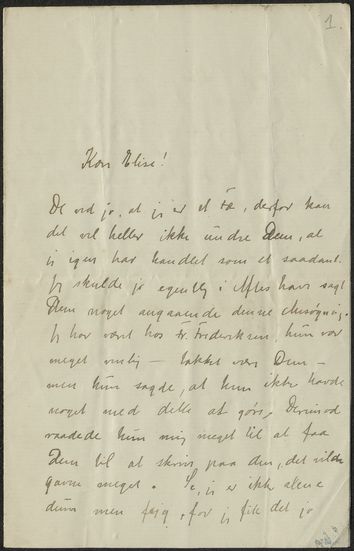 1.
Kære Elise!
De ved jo, at jeg er et Fæ, derfor kan
det vel heller ikke undre Dem, at
jeg igen har handlet som et saadant.
Jeg skulde jo egentlig i Aftes have sagt
Dem noget angaaende denne Ansøgning.
Jeg har været hos Fr. Frederiksen, hun var
meget venlig — takket være Dem —
men hun sagde, at hun ikke havde
noget med dette at gøre. Derimod
raadede hun mig meget til at faa
Dem til at skrive paa den, det vilde
gavne meget. Se, jeg er ikke alene
dum men fejg, for jeg fik det jo